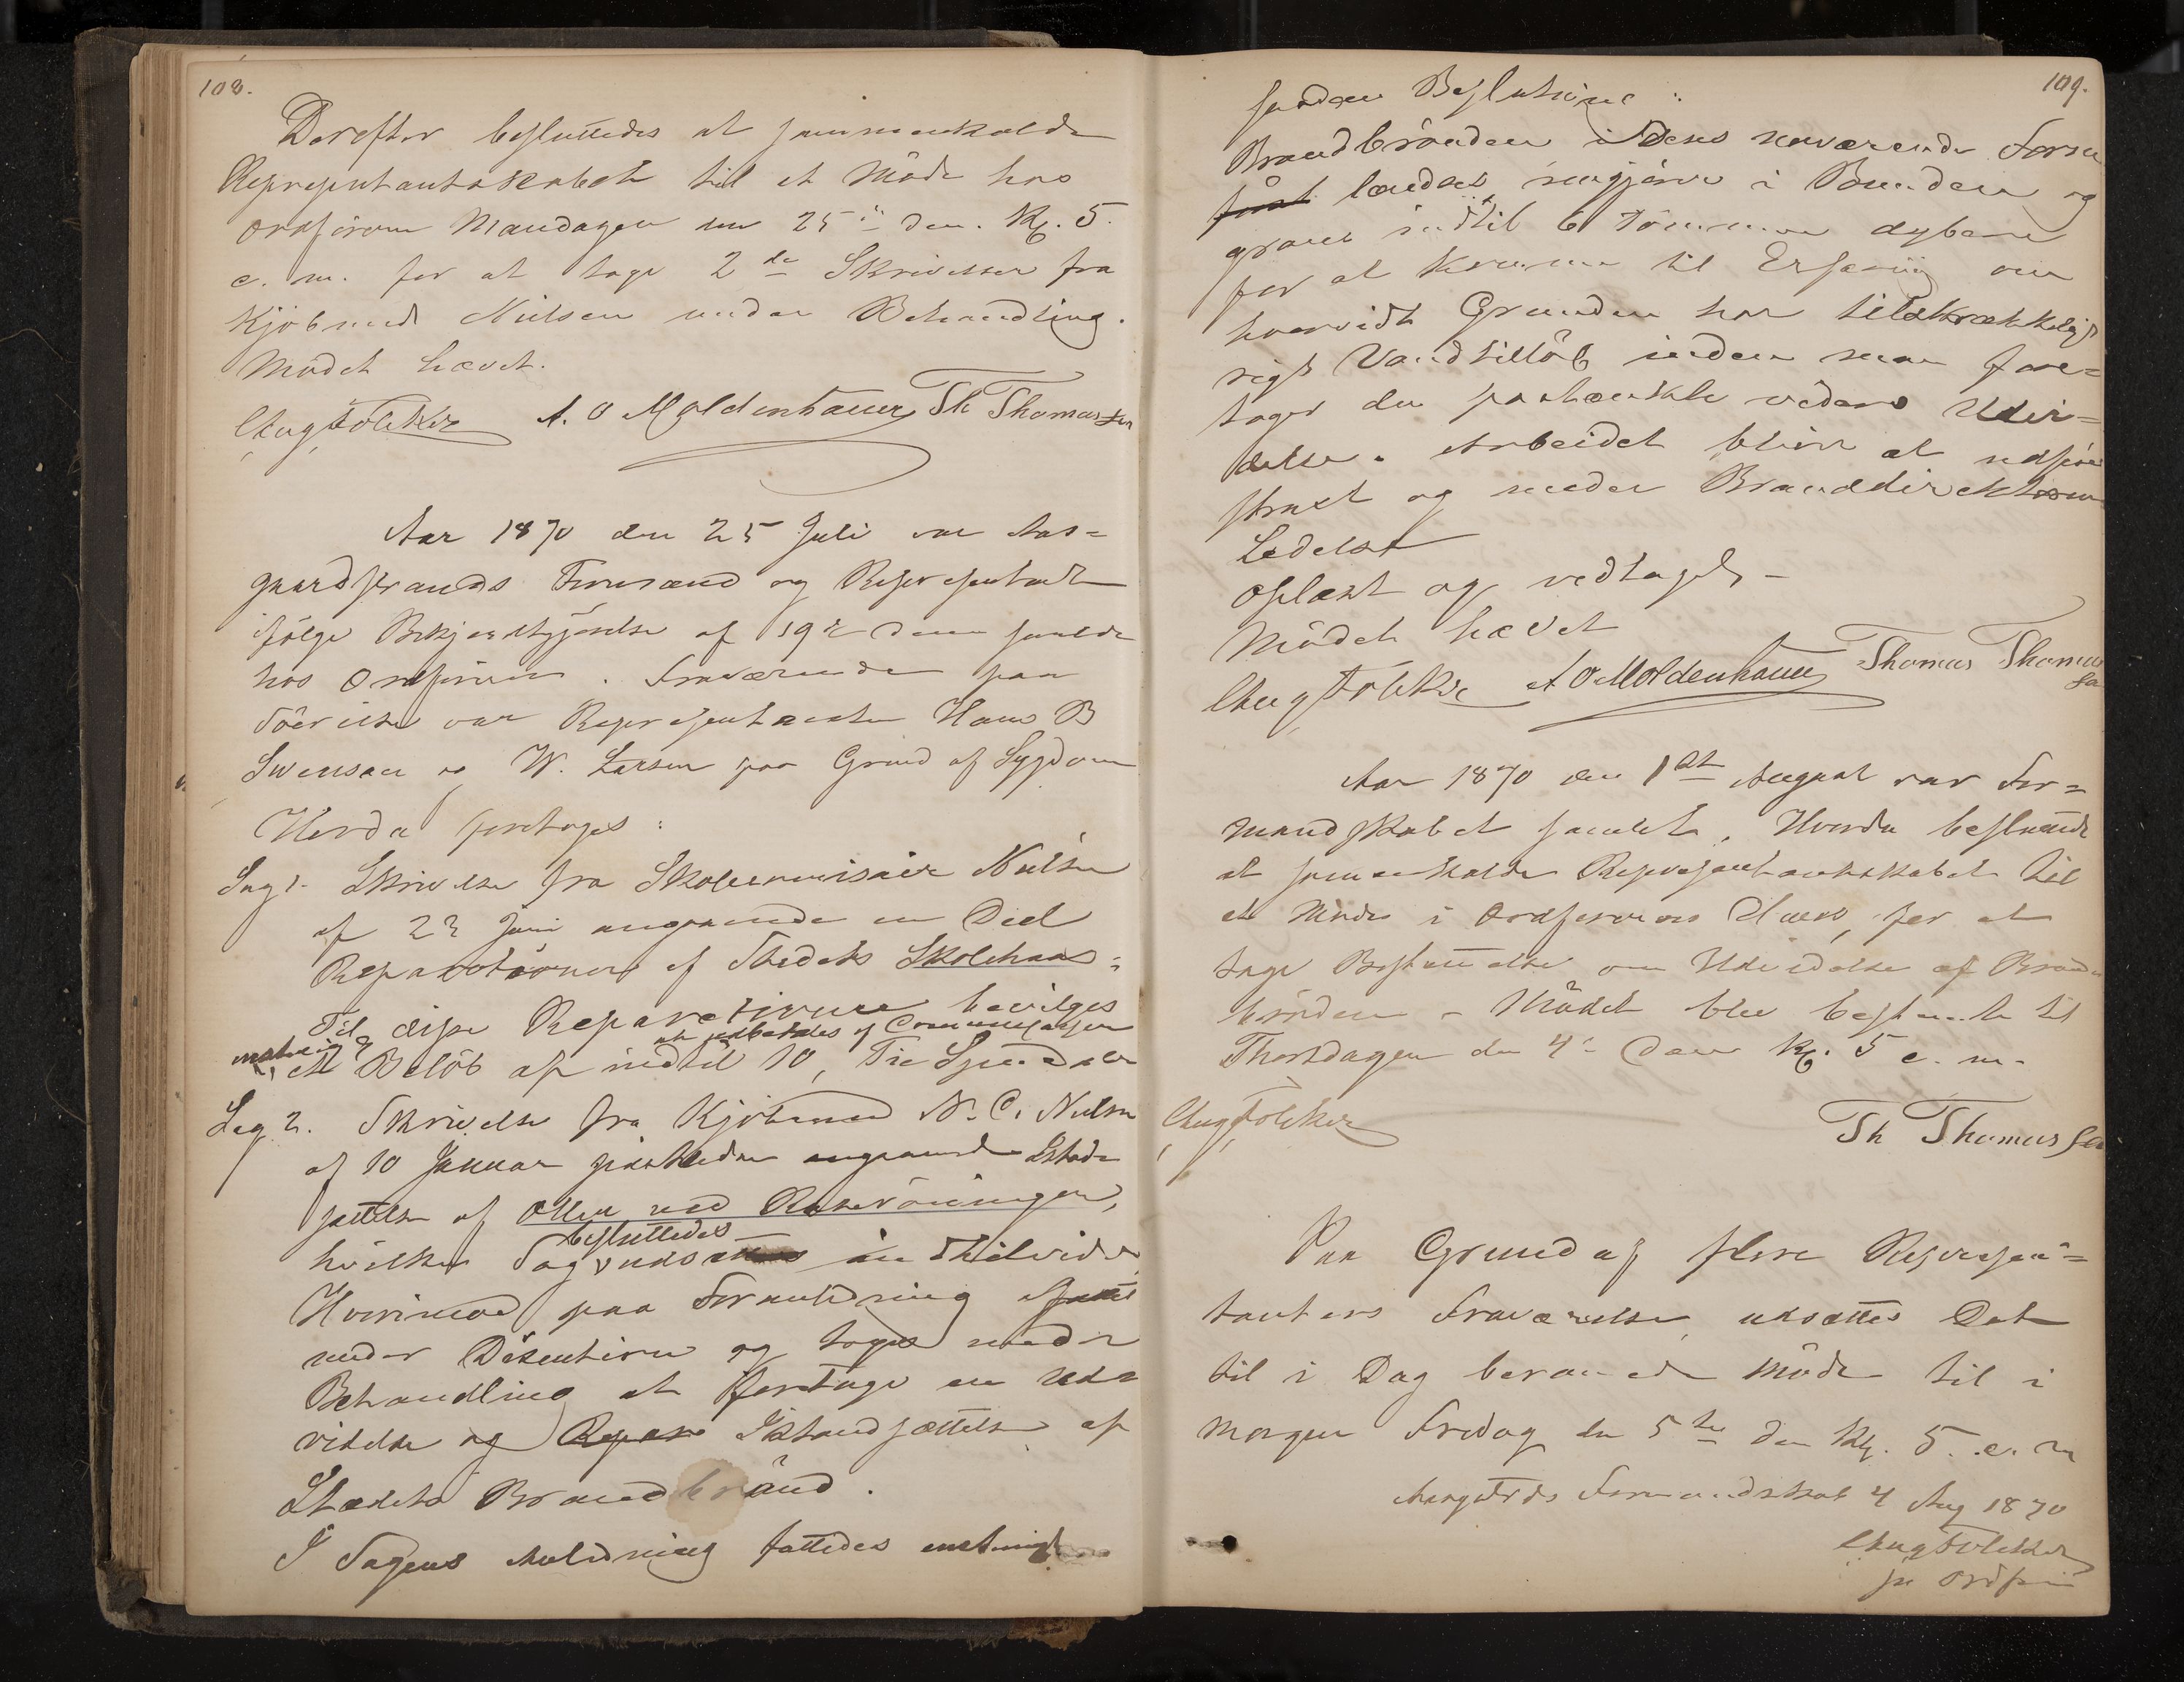 108.
Derefter besluttedes at sammenkalde
Repræsentantskabet til et Möde hos
Ordföreren Mandagen den 25de den. Kl. 5.
e. m. for at tage 2de Skrivelser fra
Kjöbmand Nielsen under Behandling.
Mödet hævet.
Aug Fölcker A. O Moldenhauer Th Thomassen
Aar 1870 den 25 Juli var Aas=
gaardstrands Formænd og Repræsentant
ifölge Bekjendtgjörelse af 19de dennes samlede
hos Ordföreren. Fraværende paa
var Repræsentanterne Hans B
Swensen og W. Larsen paa Grund af Sygdom
Hvorda foretoges:
Sag 1. Skrivelse fra Skolecommisair Nielsen
af 22 Juni angaaende en Deel
Reparationer af Stedets Skolehuus:
Til disse Reparationer bevilges
enstemigt at udbetales af Communekassen
et Belöb af indtil 10, Tie Speciedaler
Sag 2. Skrivelse fra Kjöbmand N. C. Nielsen
af 10 Januar sidstleden angaaende Istand
sættelse af Alleen ved
besluttedes
hvilken Sag udsattes indtilvidere
Hvorimod paa Foranledning sattes
under Discution og toges under
Behandling at foretage en Ud=
videlse og Repara Istandsættelse af
Stædets Brandbrönd.
I Sagens Anledning fattedes enstemigt
109.
saadan Beslutning:
Brandbrönden i dens nuværende Form
först lændses, rengjöres i Bunden og
graves indtil 6 Tommer dybere
for at komme til Erfaring om
hvorvidt Grunden har tilstrækkeligt
rigt Vandtillöb inden man fore=
tager den paatænkte videre Udvi=
delse. Arbeidet bliver at udföre
strax og under Branddirekteurens
Ledelse
Oplæst og vedtaget.
Mödet hævet
Aug Fölcker A O Moldenhauer Thomas Thomas
sen
Aar 1870 den 1ste August var For=
mandskabet samlet. Hvorda besluttedes
at sammenkalde Repræsentantskabet til
et Möde i Ordförerens Huus, for at
tage Bestemmelse om Udvidelse af Brand
brönden. Mödet blev bestemt til
Thorsdagen den 4de den Kl. 5 e. m.
Aug Fölcker
Th Thomassen
Paa Grund af flere Repræsen=
tanters Fraværelse, udsættes Det
til i Dag beramede Möde til i
Morgen Fredag den 5te den Kl. 5. e. m
Aasgstrds Formandskab 4 Aug 1870
Aug Fölcker
Ordför